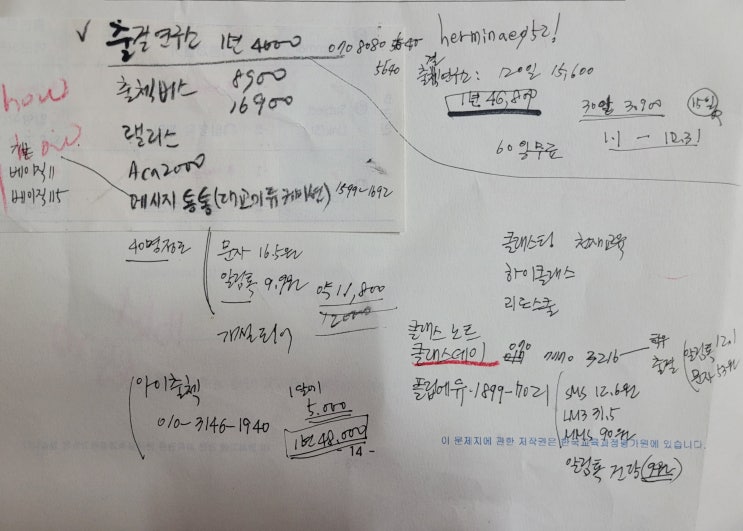 ✓ 출결연구소 1년 4000 070 8080 5640
5640
출첵버스 8900
16900
랠리스
Aca2000
메시지 통통(대교커뮤니케이션) 1599-1692
how
베이직 11
베이직 115
herminae952!
출결연구소: 120일 15,600
1년 46,800
30일 3,900 15일
1.1 - 12.31
60일무료
40명정도
문자 16.5원
알림톡 9.9원 약 11,800
12000
개설되어
아이출첵
010-3146-1940
1달에
5,000
1년 48,000
- 14 -
클래스팅 천재교육
하이클래스
리드스쿨
클래스 노트
클래스데이 070 7770 3216 - 출결 알림톡 12.1
문자 53원
클럽에듀 · 1899-7021
SMS 12.6원
LMS 31.5
MMS 90원
알림톡 건당 (9원)
이 문제지에 관한 저작권은 한국교육과정평가원에 있습니다.